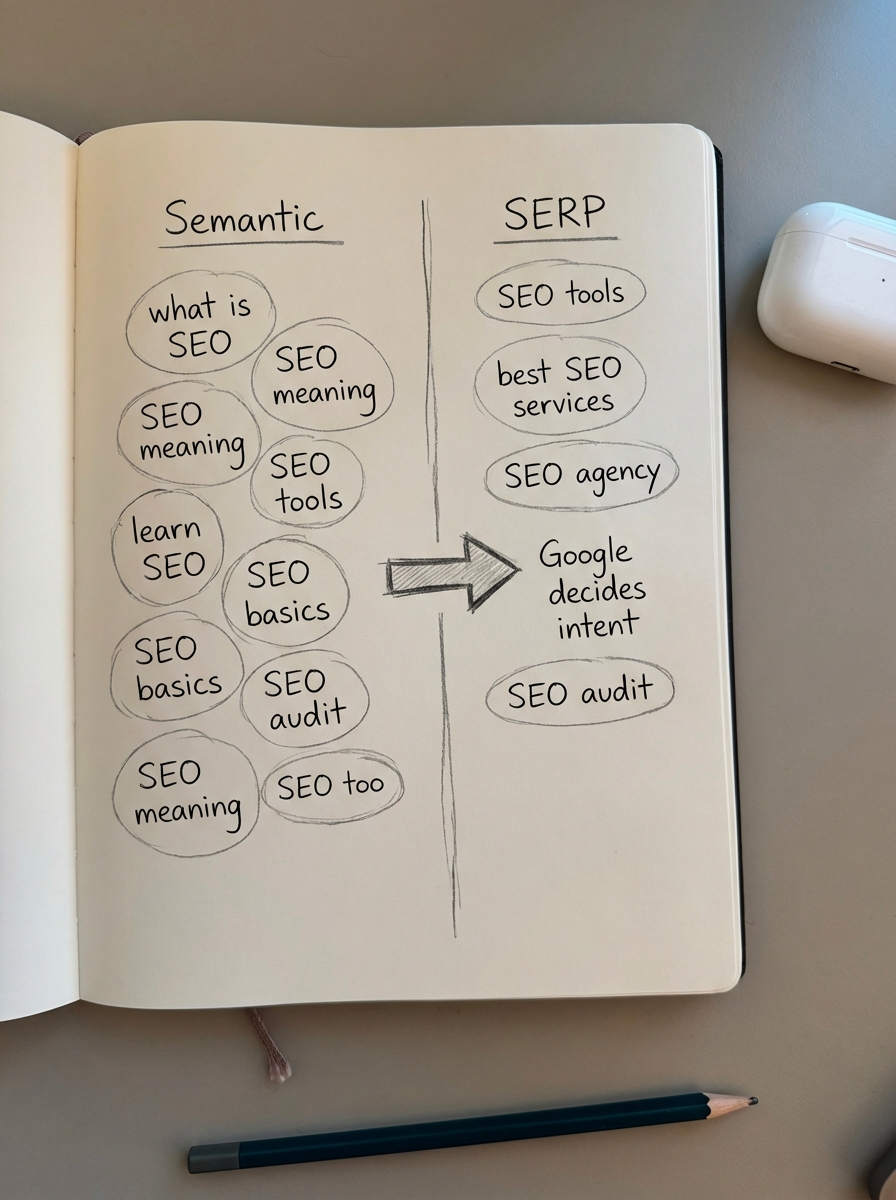 Semantic
what is
SEO
SEO
meaning
SEO
meaning
SEO
tools
learn
SEO
SEO
basics
SEO
basics
SEO
audit
SEO
meaning
SEO too
SERP
SEO tools
best SEO
services
SEO agency
Google
decides
intent
SEO audit